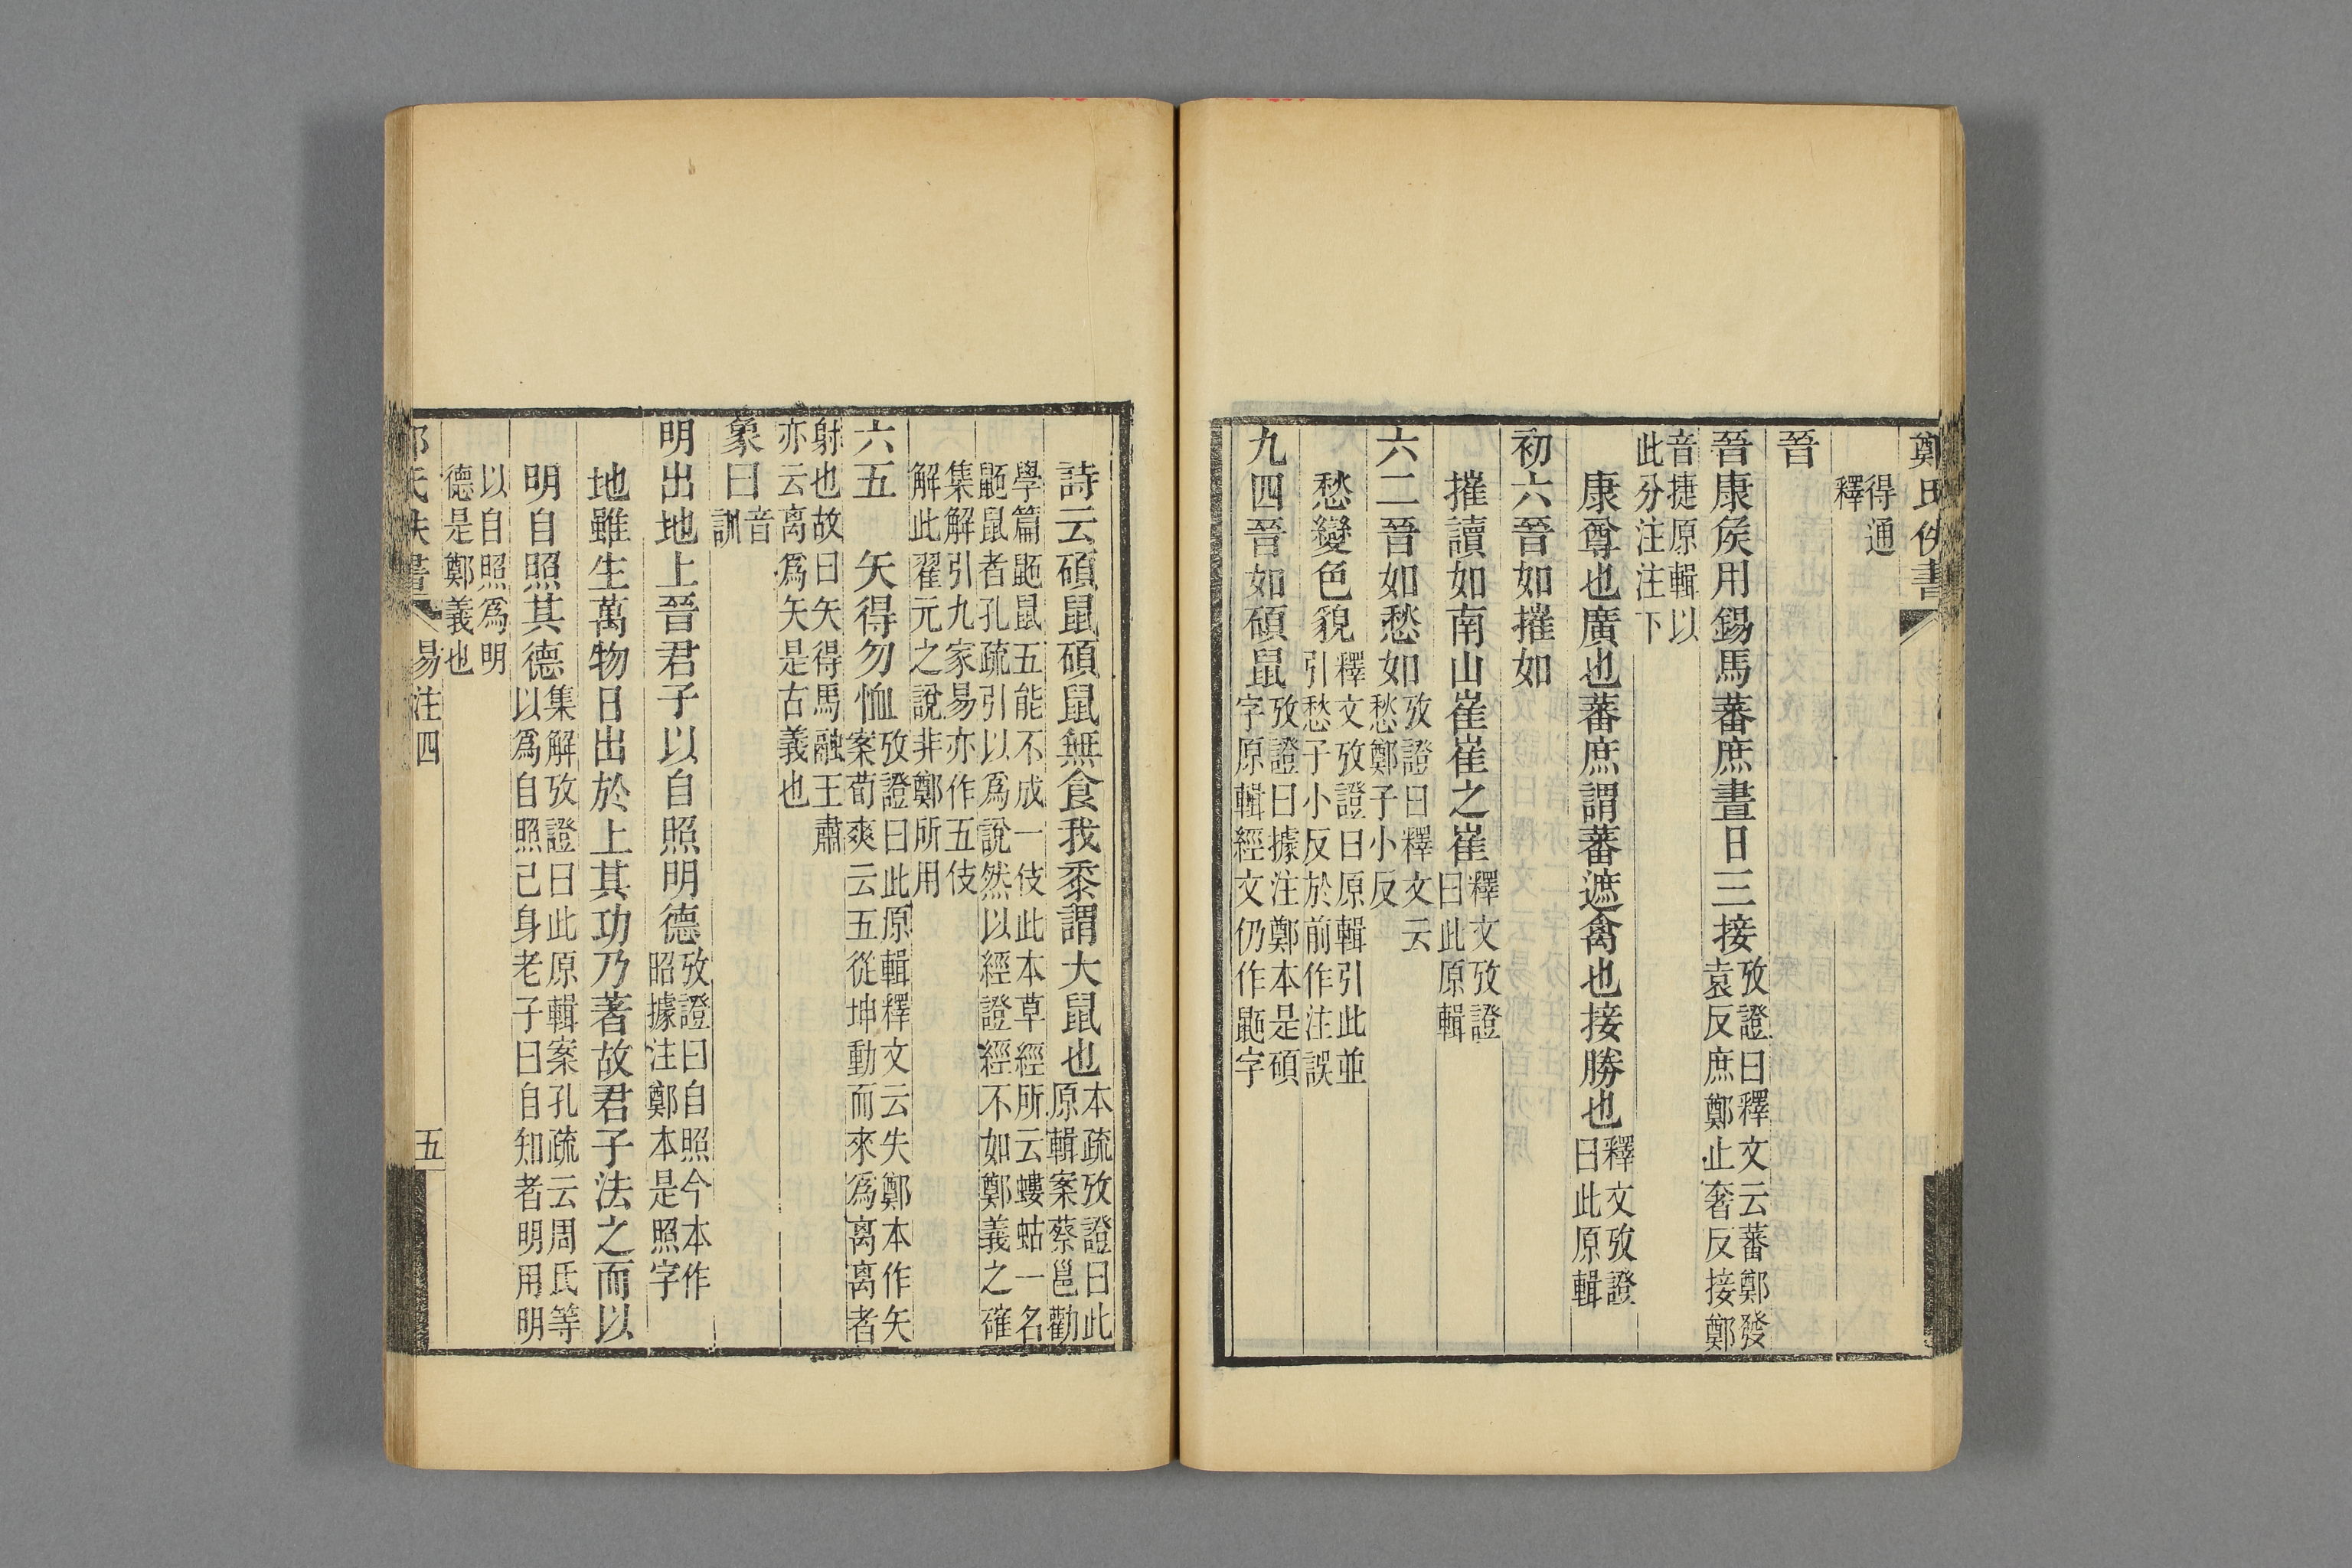 鄭氏佚書
得通
釋
晉
晉康矦用錫馬蕃庶晝日三接攷證曰釋文云蕃鄭發
袁反庶鄭止奢反接鄭
音捷原輯以
此分注注下
康尊也廣也蕃庶謂蕃遮禽也接勝也釋文攷證
曰此原輯
初六晉如摧如
摧讀如南山崔崔之崔釋文攷證
曰此原輯
六二晉如愁如攷證曰釋文云
愁鄭子小反
愁變色貌釋文攷證曰原輯引此並
引愁子小反於前作注誤
九四晉如碩鼠攷證曰據注鄭本是碩
字原輯經文仍作鼫字
詩云碩鼠碩鼠無食我黍謂大鼠也本疏攷證曰此
原輯案蔡邕勸
學篇鼫鼠五能不成一伎此本草經所云螻蛄一名
鼫鼠者孔疏引以爲說然以經證經不如鄭義之確
集解引九家易亦作五伎
解此翟元之說非鄭所用
六五 矢得勿恤攷證曰此原輯釋文云失鄭本作矢
案荀爽云五從坤動而來爲离离者
射也故曰矢得馬融王肅
亦云离爲矢是古義也
象曰音
訓
明出地上晉君子以自照明德攷證曰自照今本作
昭據注鄭本是照字
地雖生萬物日出於上其功乃著故君子法之而以
明自照其德集解攷證曰此原輯案孔疏云周氏等
以爲自照己身老子曰自知者明用明
以自照爲明
德是鄭義也
氏佚書 易注四 五